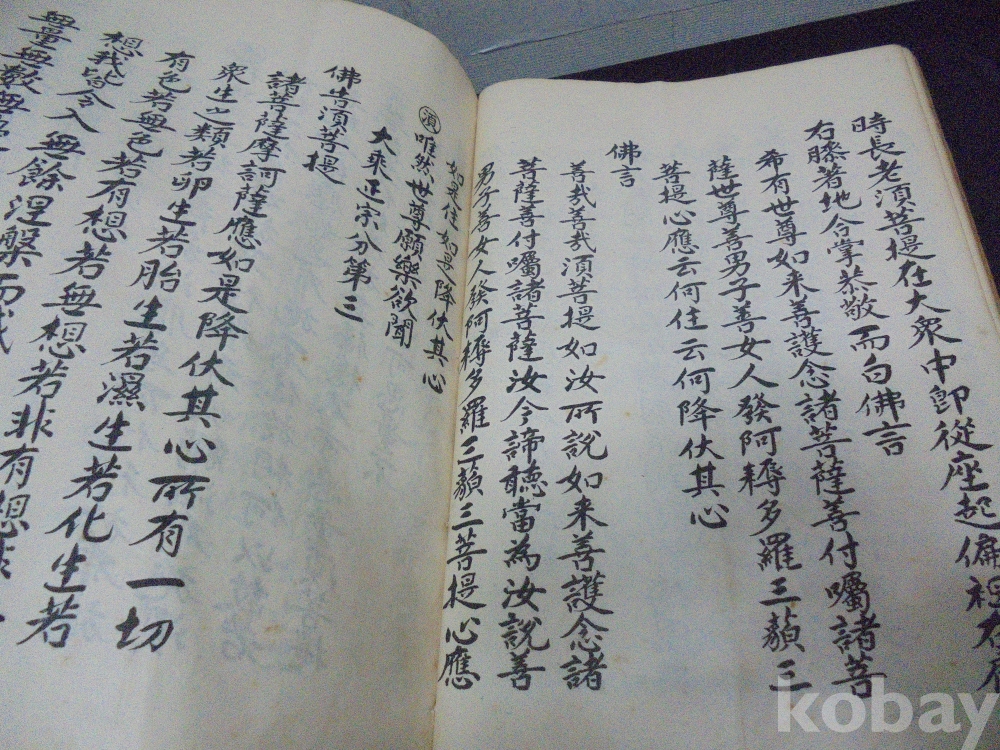 時長老須菩提在大衆中卽從座起偏袒右肩
右膝著地合掌恭敬而白佛言
希有世尊如来善護念諸菩薩善付囑諸菩
薩世尊善男子善女人發阿耨多羅三藐三
菩提心應云何住云何降伏其心
佛言
善哉善哉須菩提如汝所說如来善護念諸
菩薩善付囑諸菩薩汝今諦聽當為汝說善
男子善女人發阿耨多羅三藐三菩提心應
如是住如是降伏其心
須唯然世尊願樂欲聞
大乘正宗分第三
佛告須菩提
諸菩薩摩訶薩應如是降伏其心所有一切
衆生之類若卵生若胎生若濕生若化生若
有色若無色若有想若無想若非有想非
想我皆令入無餘涅槃而
無量無數無
kobay